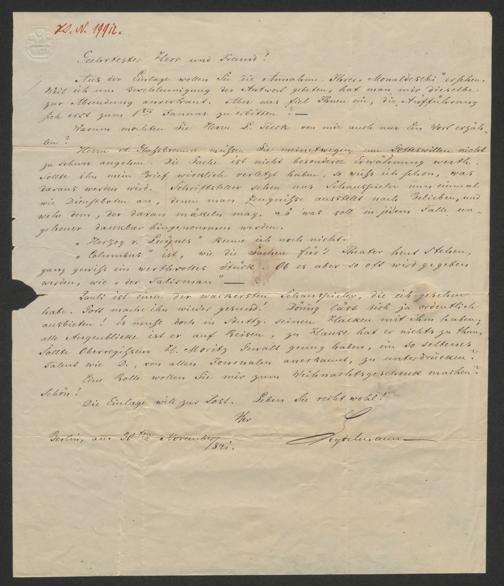 H. N. 19912.
Geehrtester Herr und Freund!
Aus der Einlage wollen Sie die Annahme Ihres „Monaldeschi" ersehen.
Weil ich um Beschleunigung der Antwort gebeten, hat man mir dieselbe
zur Absendung anvertraut. Aber was fiel Ihnen ein, die Aufführung
sich erst zum 1ten Januar zu erbitten? —
Warum mochten Sie Herrn L. Tieck von mir auch nur ein Wort erzäh-
len?
Herrn v. müssen Sie meinetwegen um Gotteswillen nicht
zu schwer angehen. Die Sache ist nicht besonderer Erwähnung werth.
Sollte ihn mein Brief wirklich verletzt haben, so weiß ich schon, was
daraus werden wird. Schriftsteller sehen uns Schauspieler nun einmal
wie Dienstboten an, denen man Zeugnisse ausstellt nach Belieben, und
wehe dem, der daran mäkeln mag. so was soll in jedem Falle un-
geheuer dankbar hingenommen werden.
„Herzog v. " kenne ich noch nicht.
„Columbus" ist, wie die Sachen für's Theater heut stehen,
ganz gewiß ein werthvolles Stück. Ob es aber so oft wird gegeben
werden, wie „der Talisman" —
ist einer der wackersten Schauspieler, die ich gesehen
habe. Gott mache ihn wieder gesund! Döring läßt sich ja ordentlich
ausbieten! Es muß doch in Stuttg. seinen Haken mit ihm haben;
alle Augenblicke ist er auf Reisen, zu Hause hat er nichts zu thun.
Sollte Oberregisseur H. Moritz Gewalt genug haben, ein so seltenes
Talent wie D., von allen Journalen anerkannt, zu unterdrücken?
Eine Rolle wollen Sie mir zum Weihnachtsgeschenk machen?
Schön!
Die Einlage will zur Post. Leben Sie recht wohl!
Ihr
Seydelmann
Berlin, am 20ten November
1841.